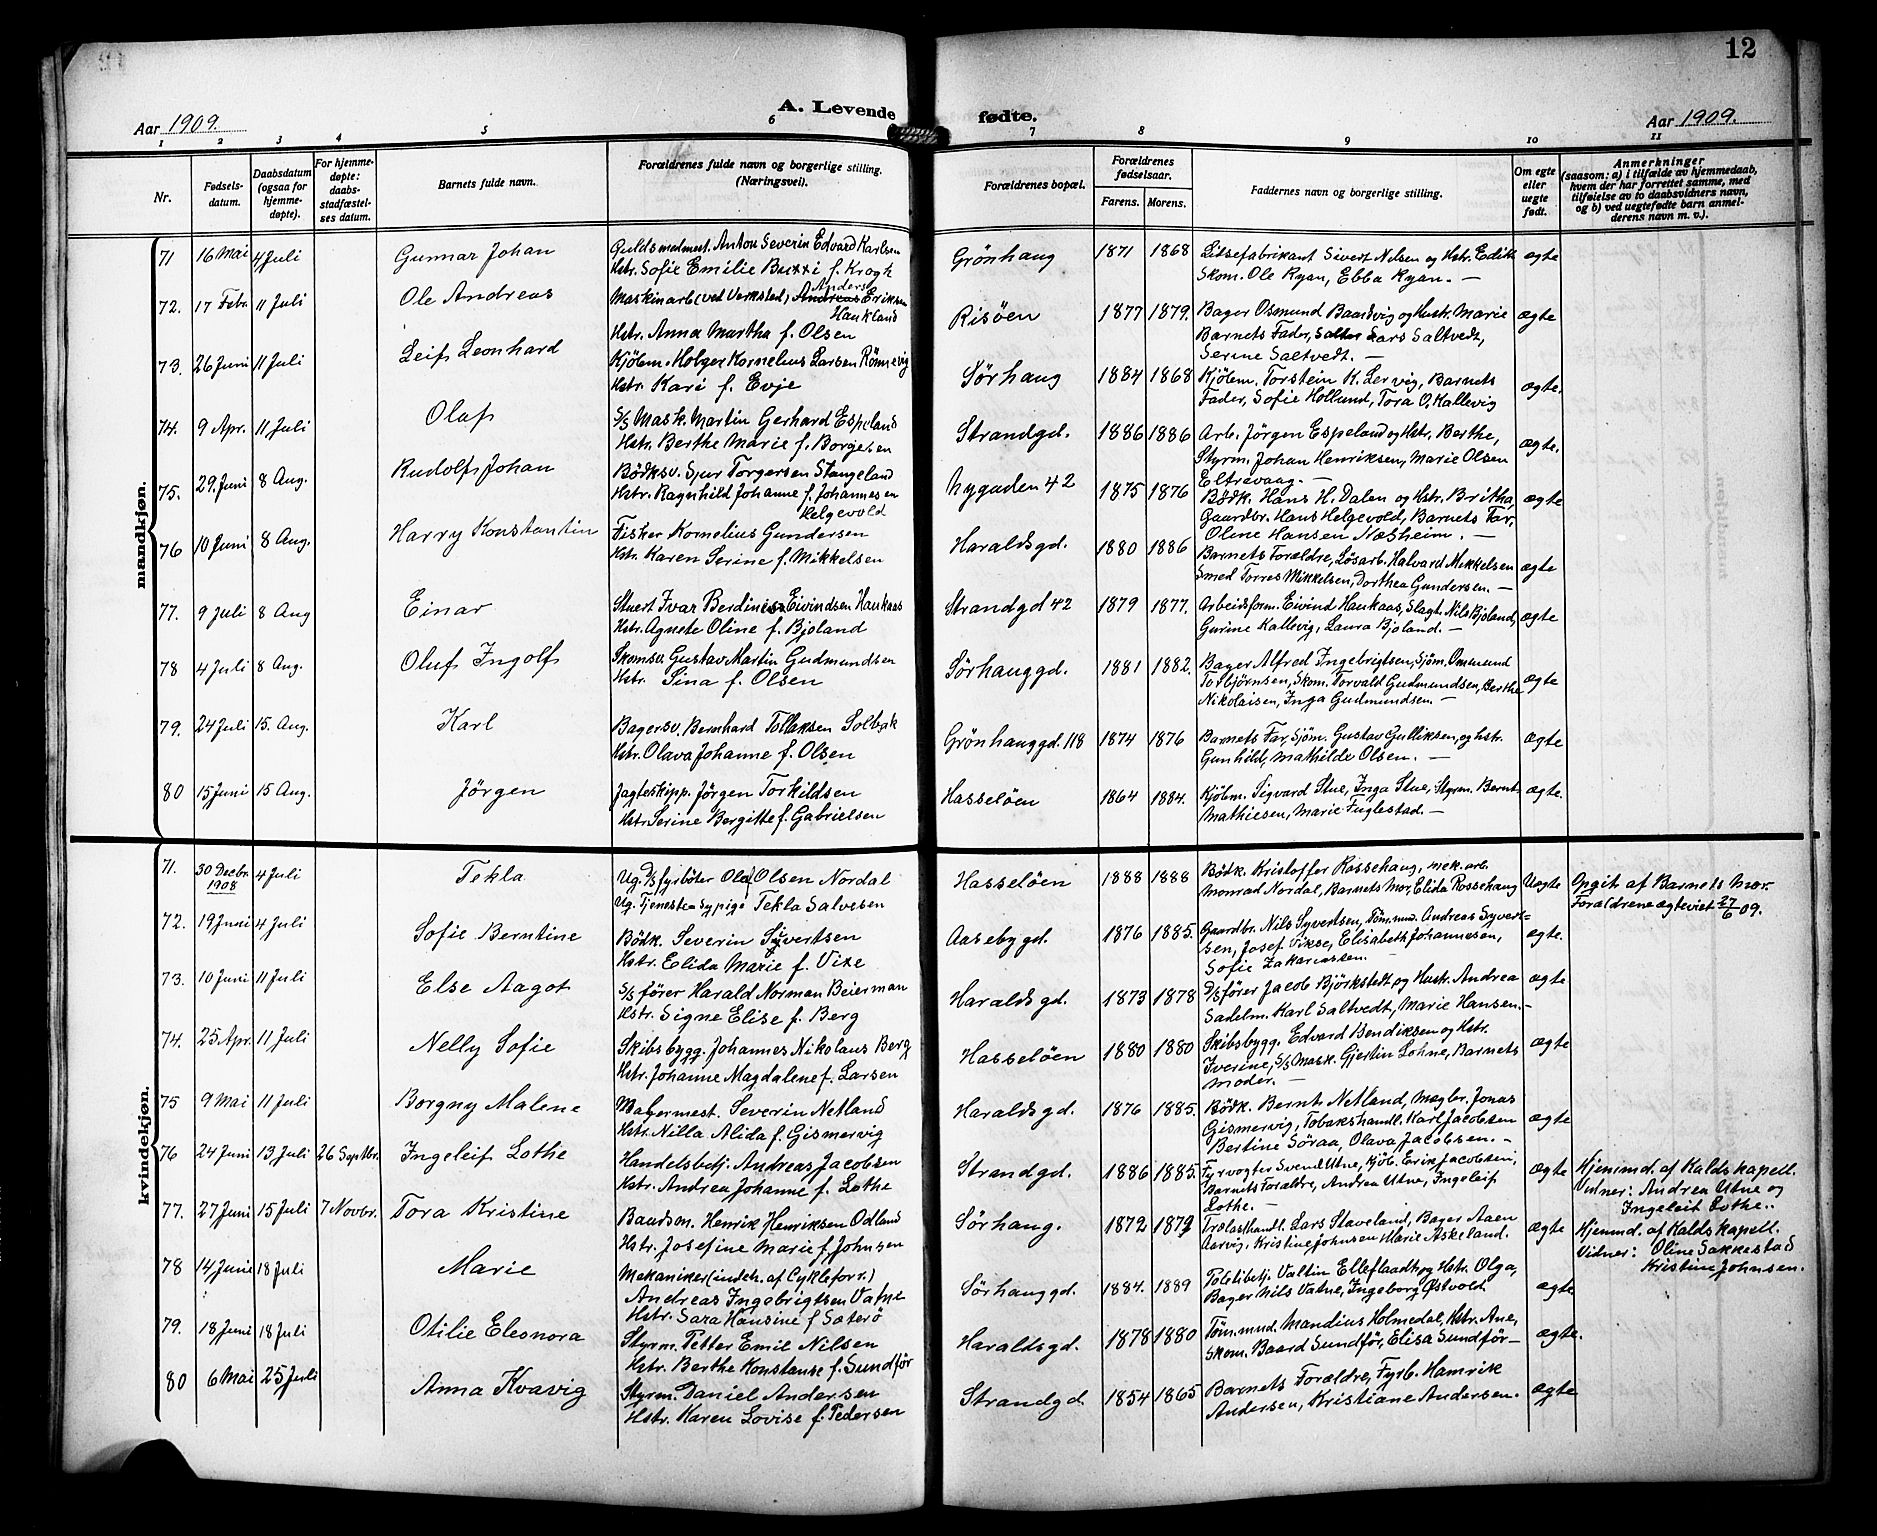 12
A. Levende fødte.
Aar 1909.
Aar 1909.
1 2 3 4 5 6 7 8 9 10 11
Nr.
Fødsels-
datum.
Daabsdatum
(ogsaa for
hjemme-
døpte).
For hjemme-
døpte:
daabs-
stadfæstel-
ses datum.
Barnets fulde navn.
Forældrenes fulde navn og borgerlige stilling.
(Næringsvei).
Forældrenes bopæl.
Forældrenes
fødselsaar.
Farens. Morens.
Faddernes navn og borgerlige stilling.
Om egte
eller
uegte
født.
Anmerkninger
(saasom: a) i tilfælde av hjemmedaab,
hvem der har forrettet samme, med
tilføielse av to daabsvidners navn,
og b) ved uegtefødte barn anmel-
derens navn m. v.).
mandkjøn.
71 16 Mai 4 Juli Gunnar Johan
Guldsmedmest. Anton Severin Edvard Karlsen
Hstr. Sofie Emilie Buxxi f. Krogh
Grönhaug 1871 1868
Litsefabrikant Sivert Nilsen og Hstr. Edith
Skom. Ole Ryan, Ebba Ryan. —
ægte
72. 17 Febr. 11 Juli Ole Andreas
Maskinarb. (ved Verksted) Andreas Anders Eriksen
Haukland
Hstr. Anna Martha f. Olsen
Risöen 1877 1879.
Bager Osmund Baardvig og Hustr. Marie
Barnets Fader, Lars Saltvedt,
Serine Saltvedt. —
ægte
73. 26 Juni 11 Juli Leif Leonhard
Kjölem. Holger Kornelius Larsen Römnevig
Hstr. Kari f. Evje
Sörhaug 1884 1868
Kjölem. Torstein K. Lervig, Barnets
Fader, Sofie Holland, Tora O. Kallevig
ægte.
74. 9 Apr. 11 Juli Olaf
S/S Mask. Martin Gerhard Espeland
Hstr. Berthe Marie f. Borgesen
Strandgd. 1886 1886
Arb. Jörgen Espeland og Hstr. Berthe,
Styrm. Johan Henriksen, Marie Olsen
Eltrevaag. —
ægte.
75. 29. Juni 8 Aug. Rudolf Johan
Bödksv. Sjur Torgersen Stangeland
Hstr. Ragnhild Johanne f. Johannesen
Helgevold
Nygaden 42 1875 1876
Bödk. Hans H. Dalen og Hstr. Britha,
Gaardbr. Hans Helgevold, Barnets Far,
Oline Hansen Næsheim. —
ægte
76 10 Juni 8 Aug. Harry Konstantin
Fisker Kornelius Gundersen
Hstr. Karen Serine f. Mikkelsen
Haraldsgd. 1880 1886
Barnets Forældre, Lösarb. Halvard Mikkelsen
Smed Torres Mikkelsen, Dorthea Gundersen. —
ægte
77. 9 Juli 8 Aug Einar
Stuert Ivar Berdines Eivindsen Haukaas
Hstr. Agnete Oline f. Bjoland
Strandgd 42 1879 1877.
Arbeidsform. Eivind Haukaas, Slagt. Nils Bjoland,
Gurine Kallevig, Laura Bjoland. —
ægte
78 4 Juli 8 Aug. Oluf Ingolf
Skomsv. Gustav Martin Gudmundsen
Hstr. Sina f. Olsen
Sörhauggd. 1881 1882.
Bager Alfred Ingebrigtsen, Sjöm. Ommund
Torbjörnsen, Skom. Torvald Gudmundsen, Berthe
Nikolaisen, Inga Gudmundsen. —
ægte
79. 24 Juli 15. Aug. Karl
Bagersv. Bernhard Tollaksen Solbak
Hstr. Olava Johanne f. Olsen
Grönhauggd. 118 1874 1876
Barnets Far, Sjöm. Gustav Gulliksen, og Hstr.
Gunhild, Mathilde Olsen. —
ægte
80 15 Juni 15 Aug. Jörgen
Jagteskipp. Jörgen Torkildsen
Hstr. Serine Bergitte f. Gabrielsen
Hasselöen 1864 1884.
Kjölem. Sigvard Stue, Inga Stue, Styrm. Bernt
Mathiesen, Marie Fuglestad. —
ægte.
kvindekjøn.
71. 30 Decbr. 1908 4 Juli Tekla
Ug. D/S fyrböter Olaf Olsen Nordal
Ug. Tjeneste Sypige Tekla Salvesen
Hasselöen 1888 1888
Bödk. Kristoffer Rossehaug, mek. arb.
Monrad Nordal, Barnets Mor, Elida Rossehaug
Uægte
Opgit af Barnets Mor.
Forældrene ægteviet 27/6 09.
72. 19 Juni 4 Juli Sofie Berntine
Bödk. Severin Syvertsen
Hstr. Elida Marie f. Vixe
Aasebygd. 1876 1885.
Gaardbr. Nils Syvertsen, Tömmd. Andreas Syvert-
sen, Josef Vikse, Elisabeth Johannesen,
Sofie Zakariassen. —
ægte.
73. 10 Juni 11 Juli Else Aagot
S/S förer Harald Norman Beierman
Hstr. Signe Elise f. Berg
Haraldsgd. 1873 1878
D/S förer Jacob Björkstedt og Hustr. Andrea
Sadelm. Karl Saltvedt, Marie Hansen. —
ægte
74. 25 Apr. 11 Juli Nelly Sofie
Skibsbygg. Johannes Nikolaus Berg
Hstr. Johanne Magdalene f. Larsen
Hasselöen 1880 1880
Skibsbygg. Edvard Bendiksen og Hstr.
Iverine, S/S Mask. Gjertin Lohne, Barnets
Moder. —
ægte
75 9 Mai 11 Juli Borgny Malene
Malermest. Severin Netland
Hstr. Nilla Alida f. Gismervig
Haraldsgd. 1876 1885.
Bödk. Bernt Netland, Mægler. Jonas
Gismervig, Tobakshandl. Karl Jacobsen
Bertine Söraa, Olava Jacobsen. —
ægte
76 24 Juni 13 Juli 26 Septbr. Ingeleif Lothe
Handelsbetj. Andreas Jacobsen
Hstr. Andrea Johanne f. Lothe
Strandgd. 1886 1885.
Fyrvogter Svend Utne, Kjöb. Erik Jacobsen,
Barnets Forældre, Andrea Utne, Ingeleif
Lothe. —
ægte
Hjemmd. af Kaldskapell.
Vidner: Andrea Utne og
Ingeleif Lothe.
77. 27 Juni 15 Juli 7 Novbr. Tora Kristine
Baadsm. Henrik Henriksen Odland
Hstr. Josefine Marie f. Johnsen
Sörhaug. 1872 1872
Trælasthandl. Lars Staveland, Bager Aaen
Aarvig, Kristine Johnsen Marie Askeland.
ægte
Hjemmd. af Kaldskapell.
Vidner: Oline Sakkestad
Kristine Johnsen.
78 14 Juni 18 Juli Marie
Mekaniker (indeh. af Cykleforr.)
Andreas Ingebrigtsen Vatne
Hstr. Sara Hansine f. Säterö
Sörhauggd. 1884. 1889
Politibetj. Valtin Elleflaadt og Hstr. Olga,
Bager Nils Vatne, Ingeborg Østvold
ægte
79. 18 Juni 18 Juli Otilie Eleonora
Styrm. Petter Emil Nilsen
Hstr. Berthe Konstanse f. Sundför
Haraldsgd. 1878 1880
Tömmd. Mandius Holmedal, Hstr. Ane,
Skom. Baard Sundför, Elisa Sundför —
ægte.
80 6 Mai 25 Juli Anna Kvavig
Styrm. Daniel Andersen
Hstr. Karen Lovise f. Pedersen
Strandgd 1854 1865
Barnets Forældre, Fyrb. Hamrik
Andersen, Kristiane Andersen.
ægte